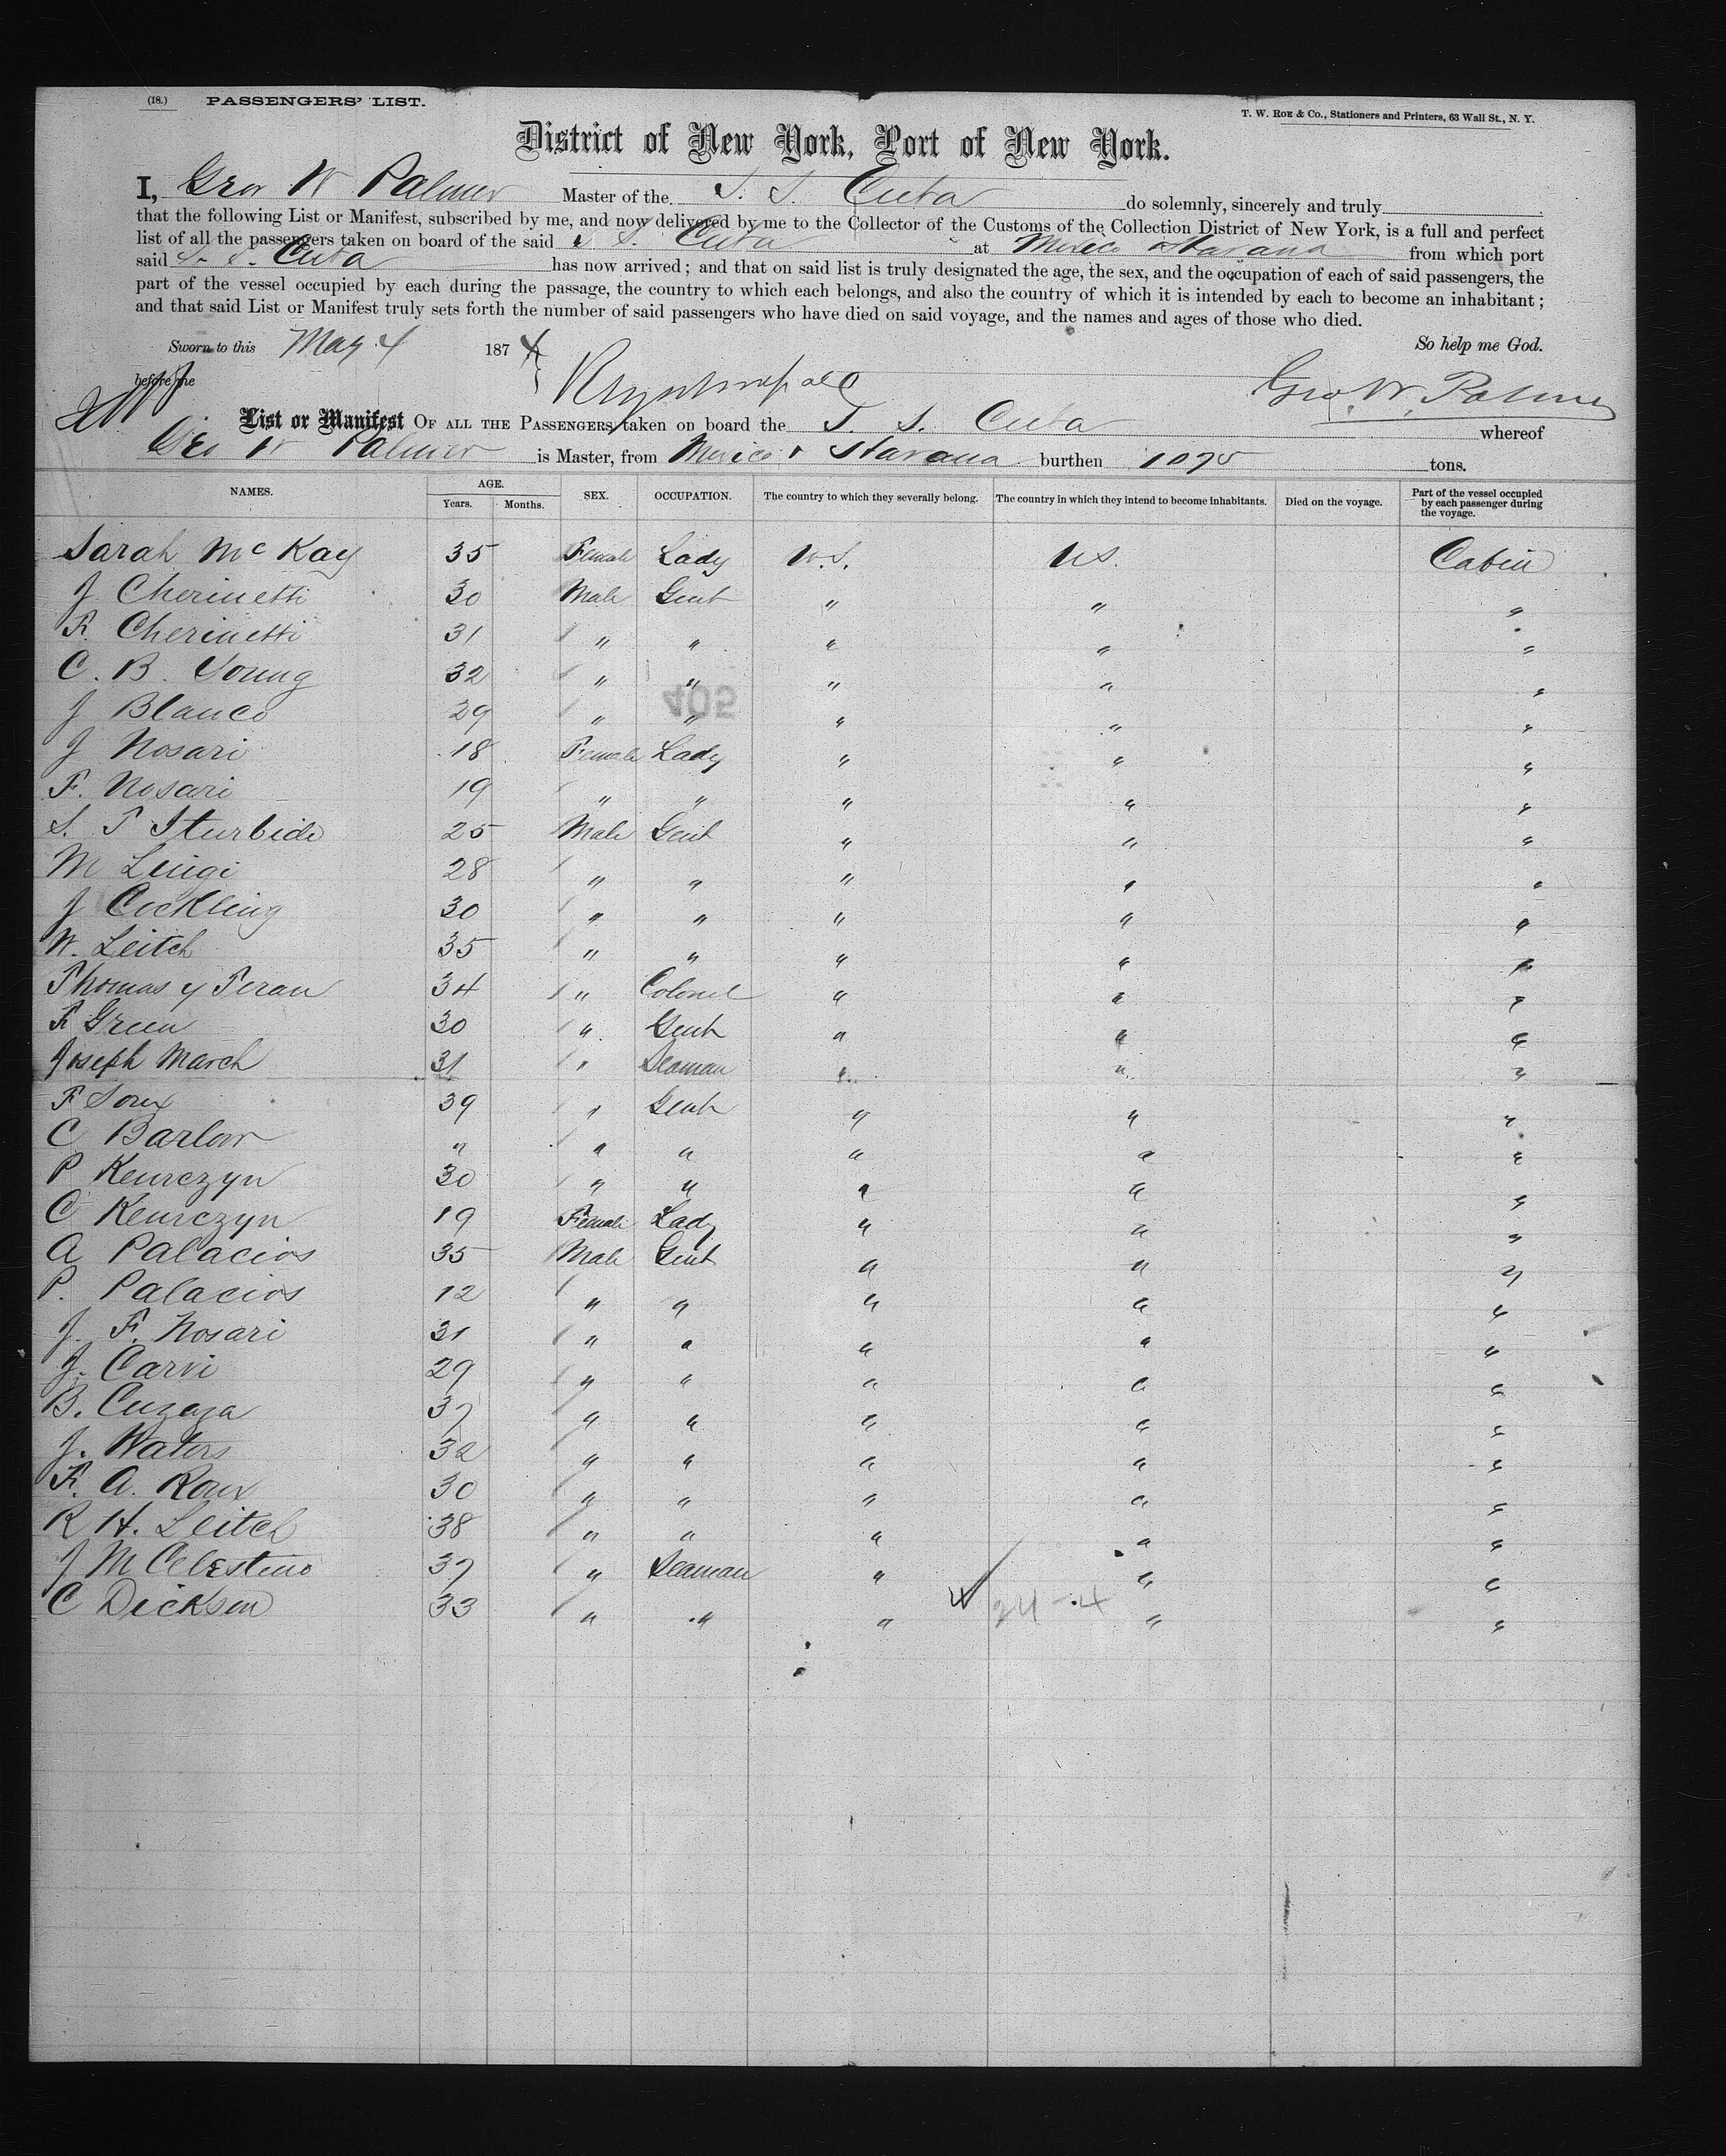 (18.) PASSENGERS' LIST.
T. W. Roe & Co., Stationers and Printers, 63 Wall St., N. Y.
District of New York, Port of New York.
I, Geo W Palmer Master of the S. S. Cuba do solemnly, sincerely and truly
that the following List or Manifest, subscribed by me, and now delivered by me to the Collector of the Customs of the Collection District of New York, is a full and perfect
list of all the passengers taken on board of the said S. S. Cuba at Mexico & Havana from which port
said S. S. Cuba has now arrived; and that on said list is truly designated the age, the sex, and the occupation of each of said passengers, the
part of the vessel occupied by each during the passage, the country to which each belongs, and also the country of which it is intended by each to become an inhabitant;
and that said List or Manifest truly sets forth the number of said passengers who have died on said voyage, and the names and ages of those who died.
Sworn to this May 4 1874 So help me God.
before me Geo. W. Palmer
List or Manifest OF ALL THE PASSENGERS taken on board the S. S. Cuba whereof
Geo W Palmer is Master, from Mexico & Havana burthen tons.
NAMES. AGE. Years. Months. SEX. OCCUPATION. The country to which they severally belong. The country in which they intend to become inhabitants. Died on the voyage. Part of the vessel occupied by each passenger during the voyage.
Sarah McKay 35 Female Lady U.S. U.S. Cabin
J Cherinetti 30 Male Gent " " "
R. Cherinetti 31 " " " " "
C. B. Young 32 " " " " "
405
J Blanco 29 " " " " "
J Nosari 18 Female Lady " " "
F. Nosari 19 " " " " "
S. T Iturbide 25 Male Gent " " "
M Luigi 28 " " " " "
J Cockling 30 " " " " "
W. Leitch 35 " " " " "
Thomas y Teran 34 " Colonel " " "
F Green 30 " Gent " " "
Joseph March 31 " Seaman " " "
F 39 " Gent " " "
C Barlow " " " " " "
P Kenrczyn 30 " " " " "
C Kenrczyn 19 Female Lady " " "
A Palacios 35 Male Gent " " "
P. Palacios 12 " " " " "
J. F. Nosari 31 " " " " "
J. Carvi 29 " " " " "
B. 37 " " " " "
J. Waters 32 " " " " "
F. A. Roux 30 " " " " "
R H. Leitch 38 " " " " "
J M Celestino 37 " Seaman " " "
C Dickson 33 " " " " "
24 - 4